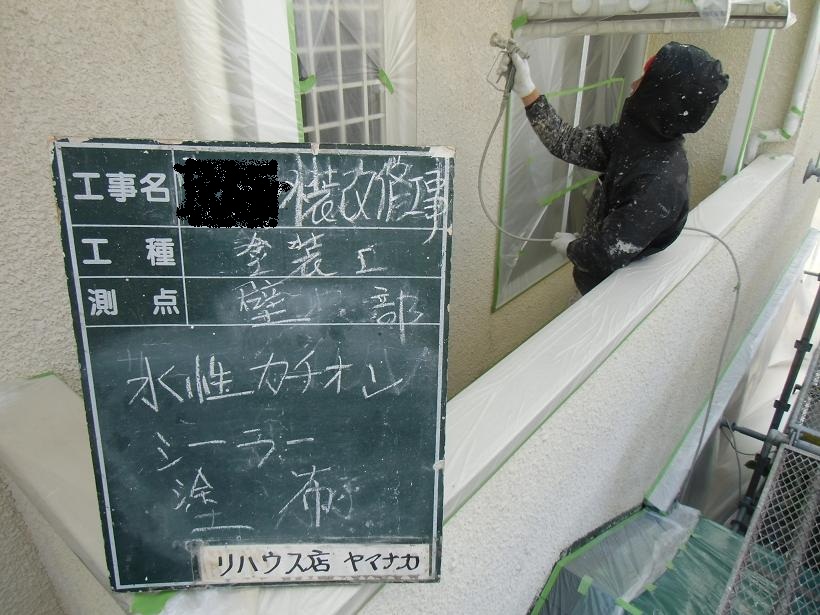 工事名 装改修事
工種 塗装工
測点 壁 部
水性カチオン
シーラー
塗布
リハウス店 ヤマナカ